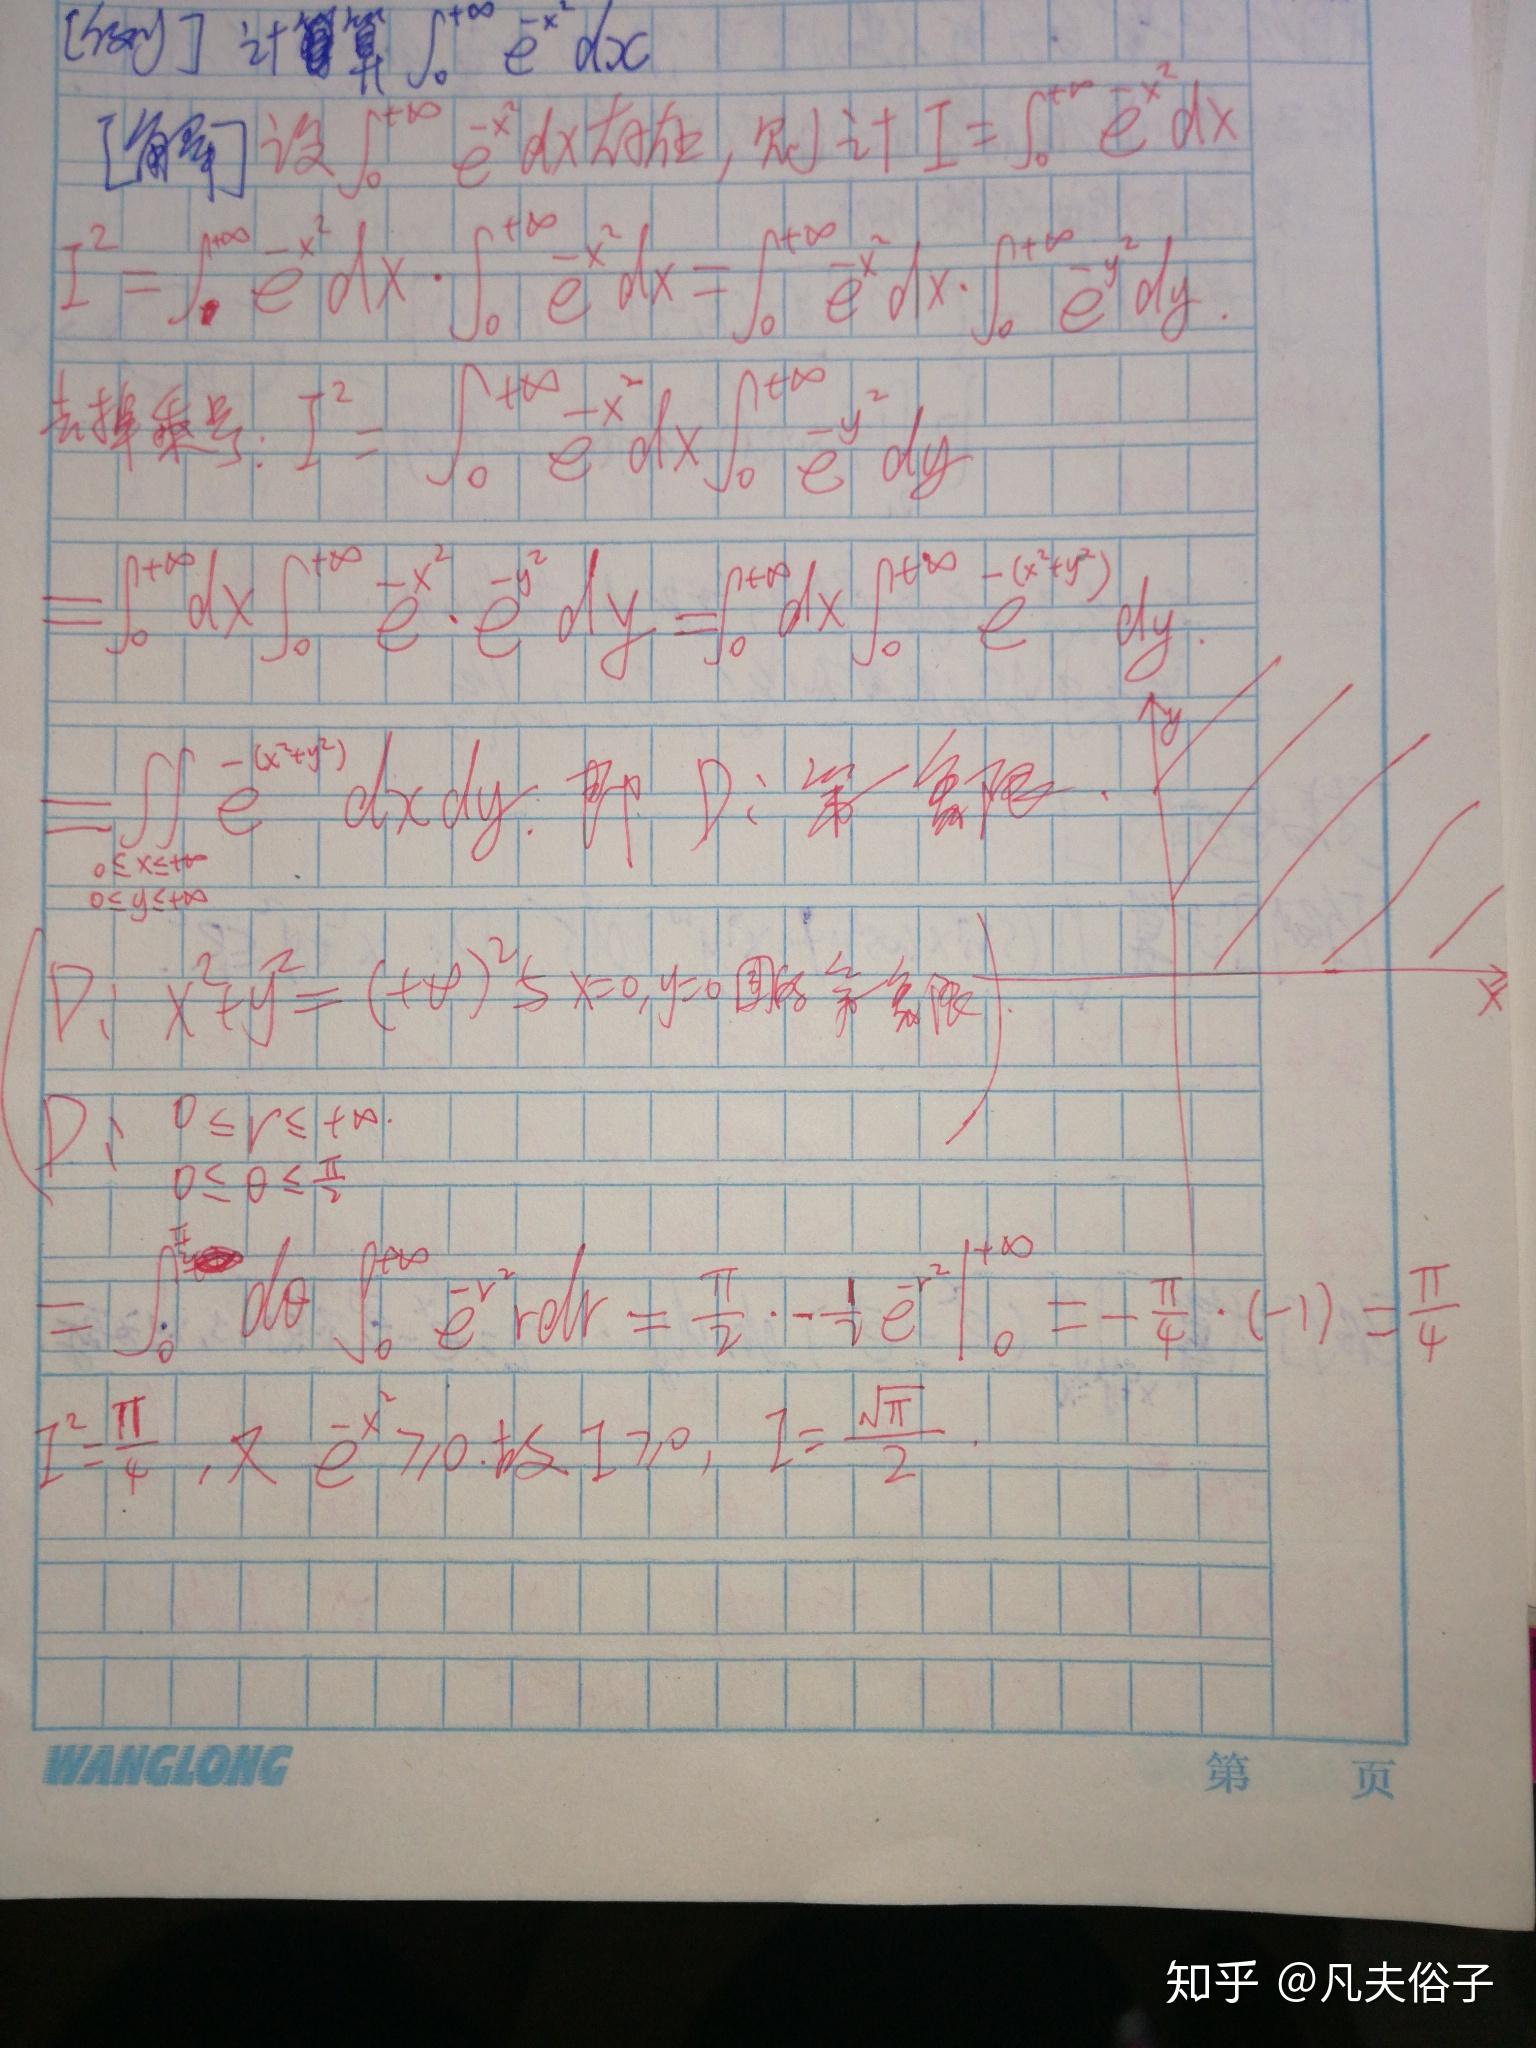 [例] 计算 ∫₀^{+∞} e^{-x²} dx
[解答] 设 ∫₀^{+∞} e^{-x²} dx 存在, 则计 I = ∫₀^{+∞} e^{-x²} dx
I² = ∫₀^{+∞} e^{-x²} dx · ∫₀^{+∞} e^{-x²} dx = ∫₀^{+∞} e^{-x²} dx · ∫₀^{+∞} e^{-y²} dy.
去掉乘号: I² = ∫₀^{+∞} e^{-x²} dx ∫₀^{+∞} e^{-y²} dy
= ∫₀^{+∞} dx ∫₀^{+∞} e^{-x²} · e^{-y²} dy = ∫₀^{+∞} dx ∫₀^{+∞} e^{-(x²+y²)} dy.
= ∬ e^{-(x²+y²)} dxdy. 即 D: 第一象限.
0≤x≤+∞
0≤y≤+∞
y
x
D: x²+y² = (+∞)² 与 x=0, y=0 围成第一象限.
D: 0≤r≤+∞.
0≤θ≤π/2
= ∫₀^{π/2} dθ ∫₀^{+∞} e^{-r²} rdr = π/2 · -1/2 e^{-r²} |₀^{+∞} = -π/4 · (-1) = π/4
I² = π/4, 又 e^{-x²} ≥0. 故 I≥0, I = √π/2.
WANGLONG
第 页
知乎 @凡夫俗子